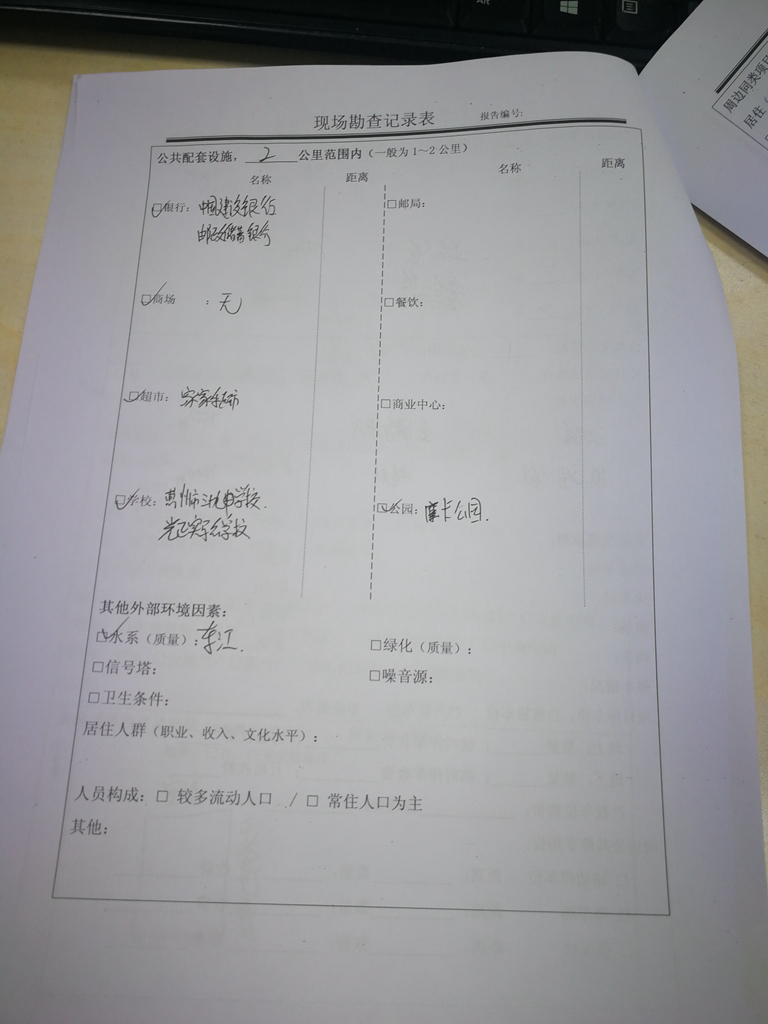 现场勘查记录表 报告编号:
公共配套设施，2公里范围内（一般为1～2公里）
名称 距离 名称 距离
□银行：中国建设银行 □邮局：
邮政储蓄银行
□商场 ：无 □餐饮：
□超市：家家福超市 □商业中心：
□学校：惠州市三九中学校. □公园：摩卡公园.
光正实验学校
其他外部环境因素：
□水系（质量）：东江. □绿化（质量）：
□信号塔： □噪音源：
□卫生条件：
居住人群（职业、收入、文化水平）：
人员构成：□ 较多流动人口 / □ 常住人口为主
其他：
周边同类项目
居住（